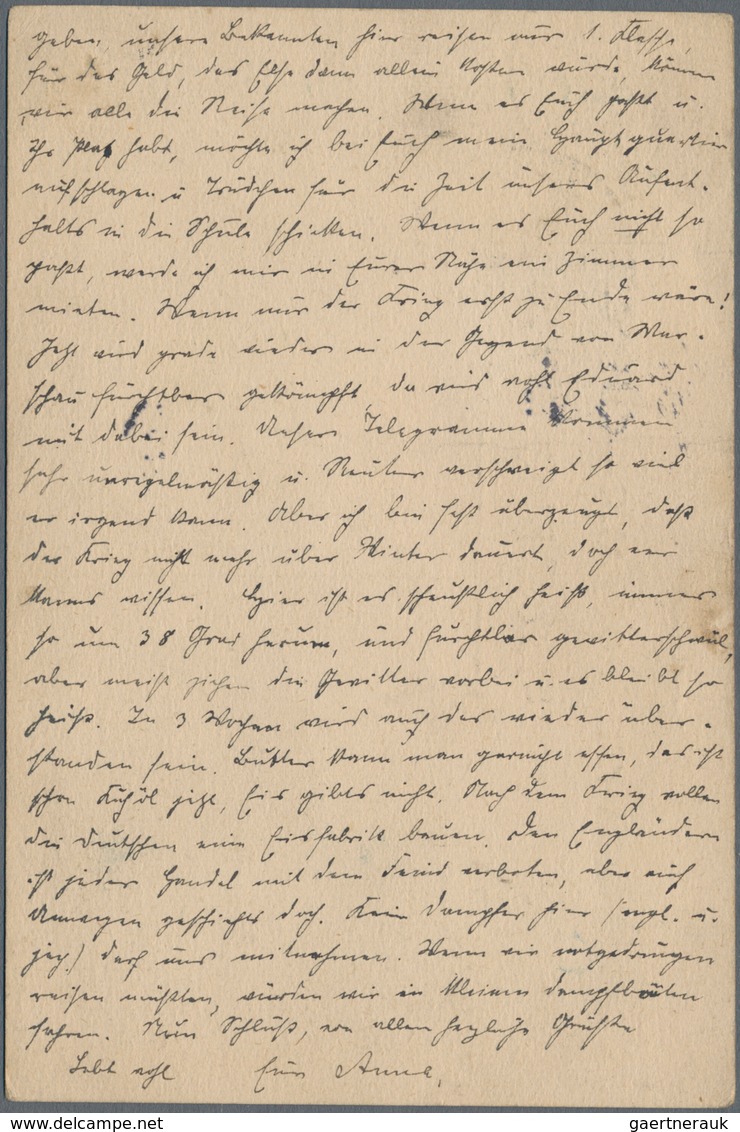 geben, unsere Bekannten hier reisen nur 1. Klasse,
für das Geld, das Else dann allein kosten würde, können
wir alle die Reise machen. Wenn es Euch paßt u.
Ihr Platz habt, möchte ich bei Euch mein Hauptquartier
aufschlagen u. Trudchen für die Zeit unsers Aufent-
halts in die Schule schicken. Wenn es Euch nicht so
paßt, werde ich mir in Eurer Nähe ein Zimmer
mieten. Wenn nur der Krieg erst zu Ende wäre!
Jetzt wird grade wieder in der Gegend von War-
schau furchtbar gekämpft, da wird wohl Eduard
mit dabei sein. Unsere Telegramme kommen
sehr unregelmäßig u. Reuter verschweigt so viel
er irgend kann. Aber ich bin fest überzeugt, daß
der Krieg nicht mehr über Winter dauert, doch wer
kanns wissen. Hier ist es scheußlich heiß, immer
so um 38 Grad herum, und furchtbar gewitterschwül,
aber meist ziehen die Gewitter vorbei u. es bleibt so
heiß. In 3 Wochen wird auch das wieder über-
standen sein. Butter kann man garnicht essen, das ist
schon Kuhöl jetzt, Eis gibts nicht. Nach dem Krieg wollen
die Deutschen eine Eisfabrik bauen. Den Engländern
ist jeder Handel mit dem Feind verboten, aber auf
Umwegen geschiehts doch. Kein Dampfer hier (engl. u.
jap.) darf uns mitnehmen. Wenn wir notgedrungen
reisen müßten, würden wir in kleinen Dampfbooten
fahren. Nun Schluß, von allen herzliche Grüße
Lebt wohl Eure Anna.
gaertnerauk